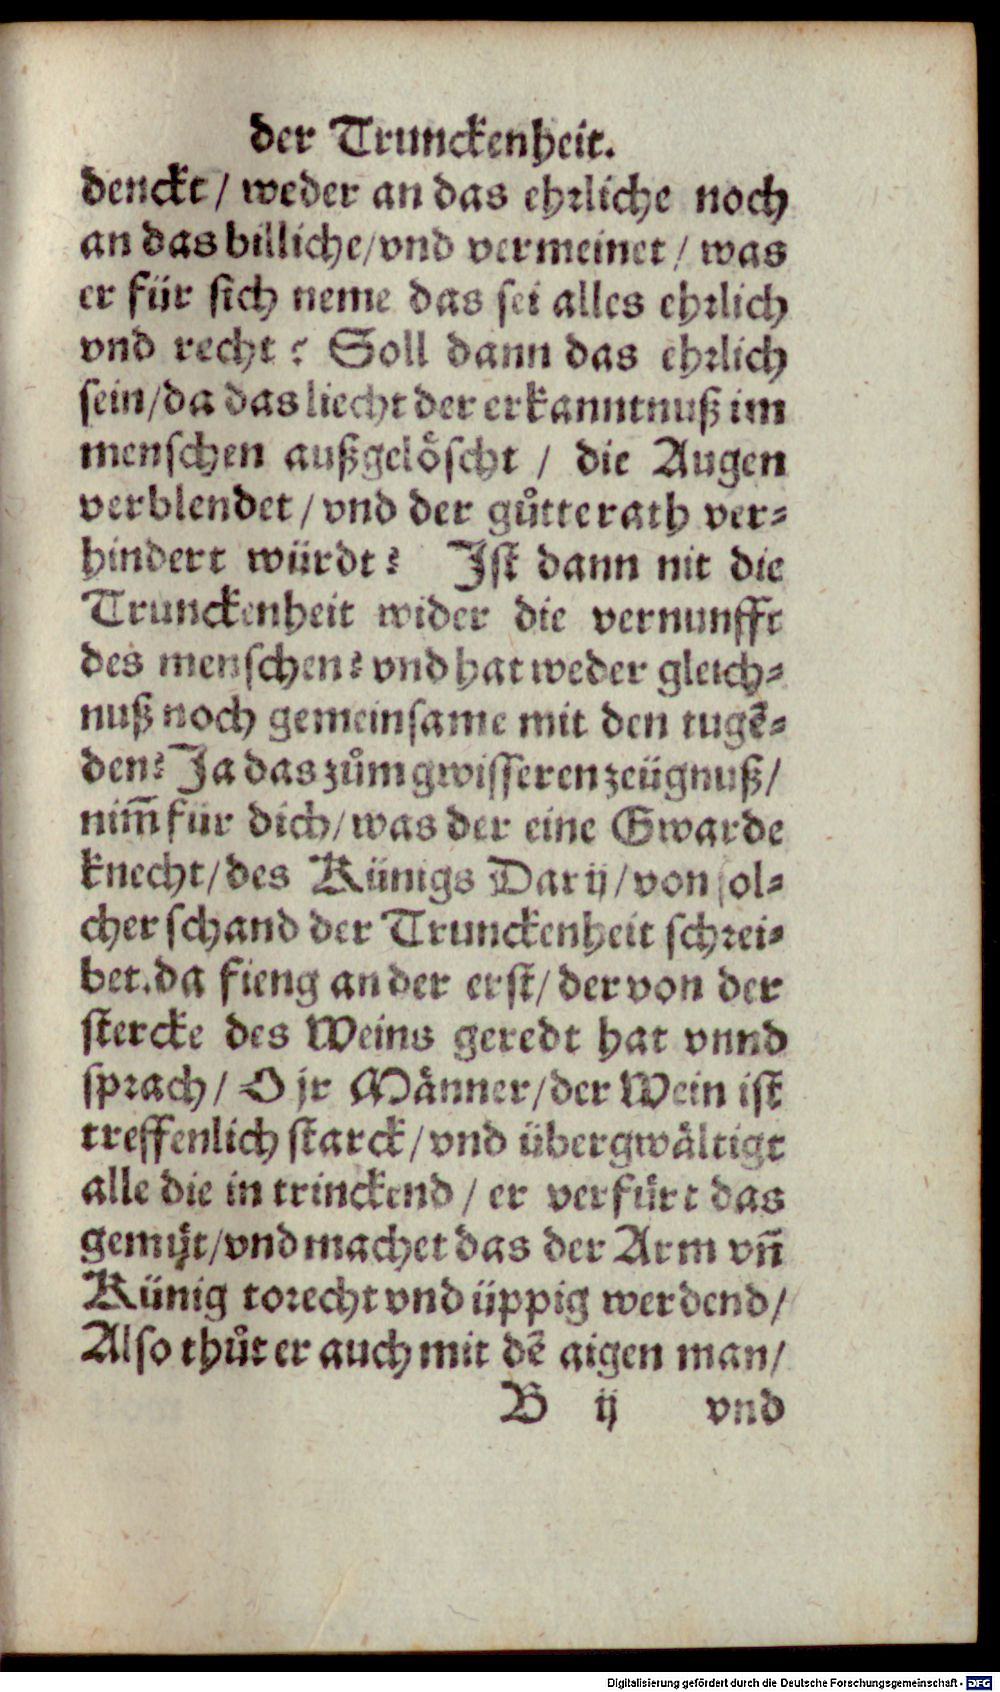 der Trunckenheit.
denckt / weder an das ehrliche noch
an das billiche/vnd vermeinet / was
er für sich neme das sei alles ehrlich
vnd recht? Soll dann das ehrlich
sein/da das liecht der erkanntnuß im
menschen außgelöscht / die Augen
verblendet / vnd der gůtte rath ver-
hindert würdt? Ist dann nit die
Trunckenheit wider die vernunfft
des menschen? vnd hat weder gleich-
nuß noch gemeinsame mit den tugē-
den? Ja das zům gwisseren zeügnuß/
nim̃ für dich/was der eine Gwarde
knecht/des Künigs Darij/von sol-
cher schand der Trunckenheit schrei-
bet.da fieng an der erst/der von der
stercke des Weins geredt hat vnnd
sprach/ O jr Männer/der Wein ist
treffenlich starck/vnd übergwältigt
alle die in trinckend / er verfürt das
gemüt/vnd machet das der Arm vñ
Künig torecht vnd üppig werdend/
Also thůt er auch mit dē aigen man/
B ij vnd
Digitalisierung gefördert durch die Deutsche Forschungsgemeinschaft - DFG